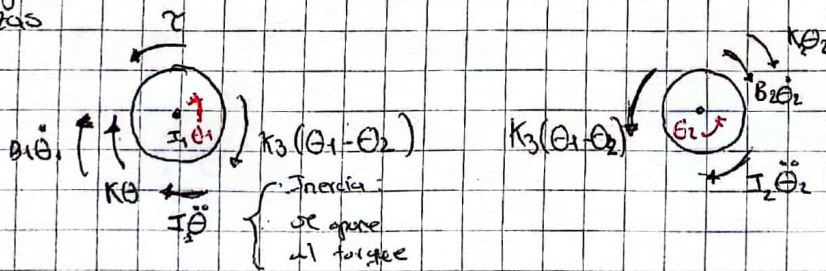 zas
τ
I₁ θ₁
B₁θ̈₁
Kθ
I₁θ̈
K₃(θ₁-θ₂)
Inercia:
se opone
al torque
K₃(θ₁-θ₂)
θ₂
K₂θ₂
B₂θ̇₂
I₂θ̈₂